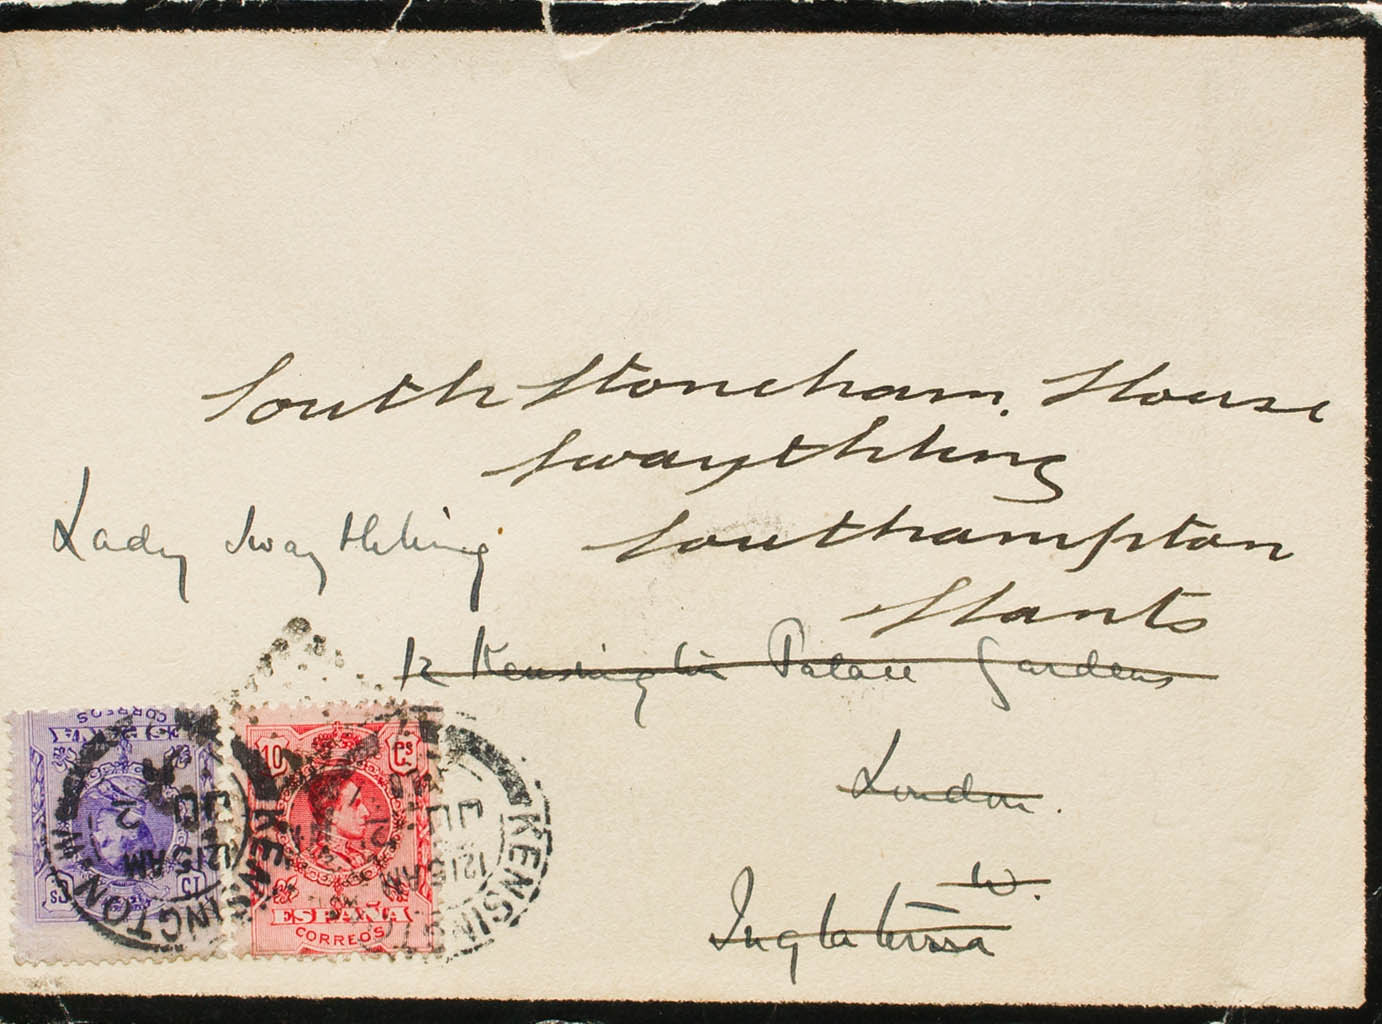 South Stoneham House
Swaythling
Southampton
Hants
Lady Swaythling
12 Kensington Palace Gardens
London.
W.
Inglaterra
CORREOS
15 Cs
KENSINGTON W.
1215 AM
2
10 Cs
ESPAÑA
CORREOS
KENSINGT
1215 AM